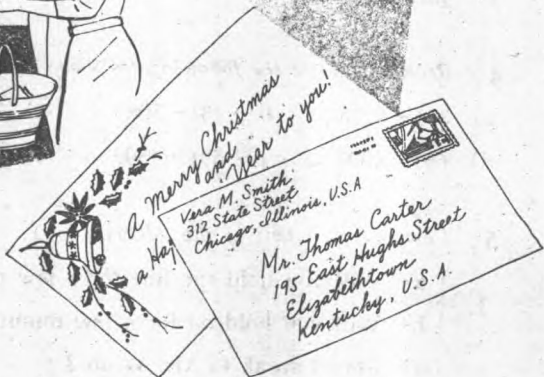 A Merry Christmas
and
a Hap Year to you!
Vera M. Smith
312 State Street
Chicago, Illinois, U.S.A
Mr. Thomas Carter
195 East Hughs Street
Elizabethtown
Kentucky, U.S.A.